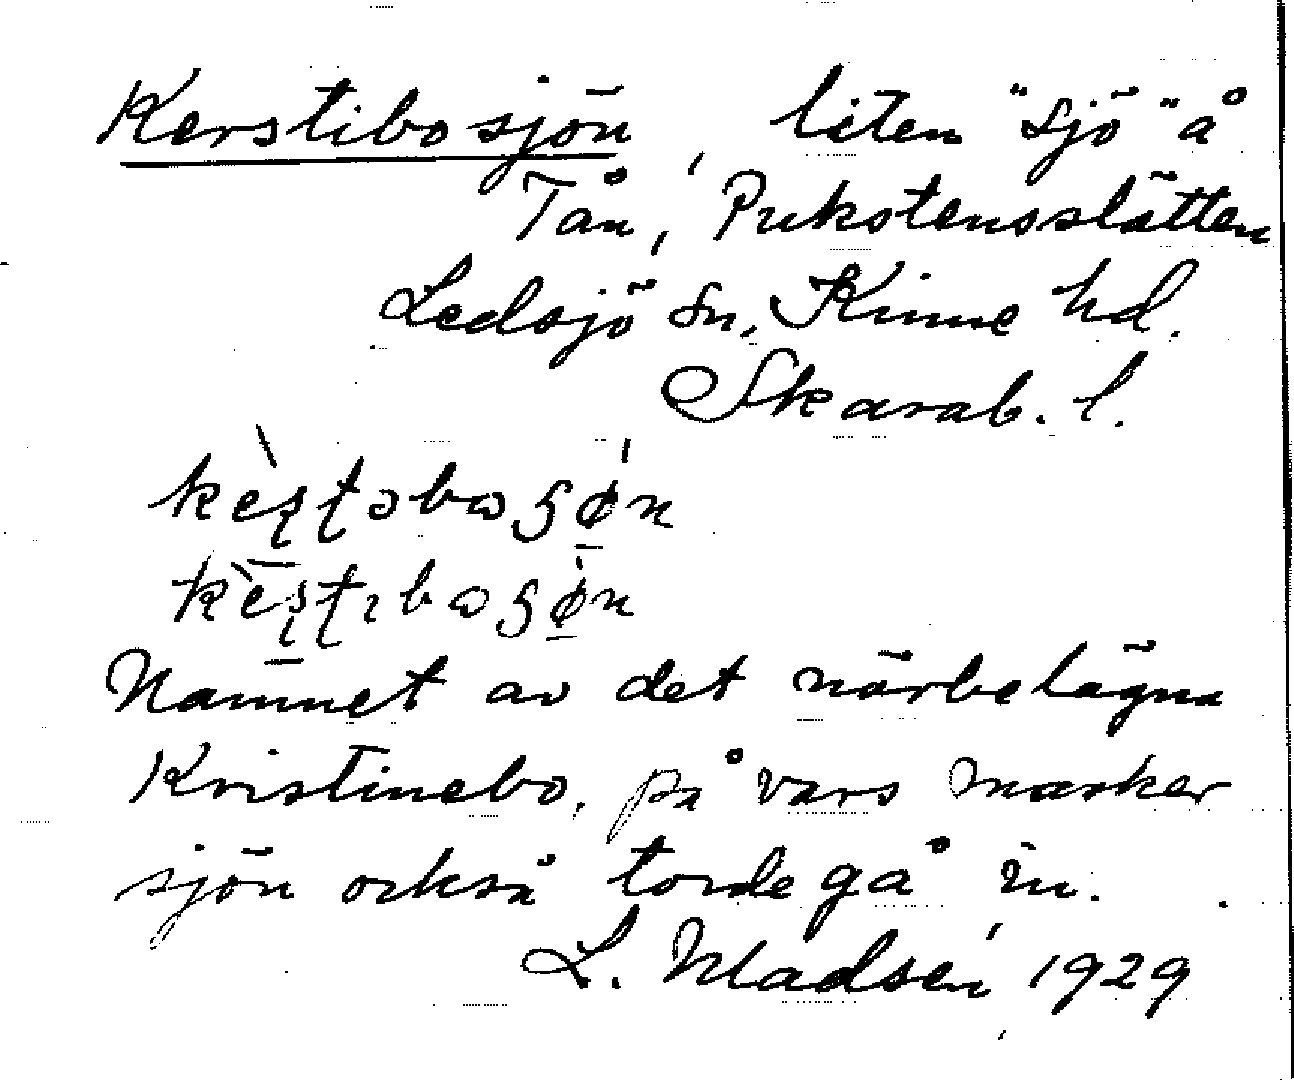 Kerstibosjön, liten "sjö" å
Tån, Pukstensslätten
Ledsjö sn, Kinne hd.
Skarab. l.
Namnet av det närbelägna
Kristinebo, på vars marker
sjön också torde gå in.
L. Madsén 1929